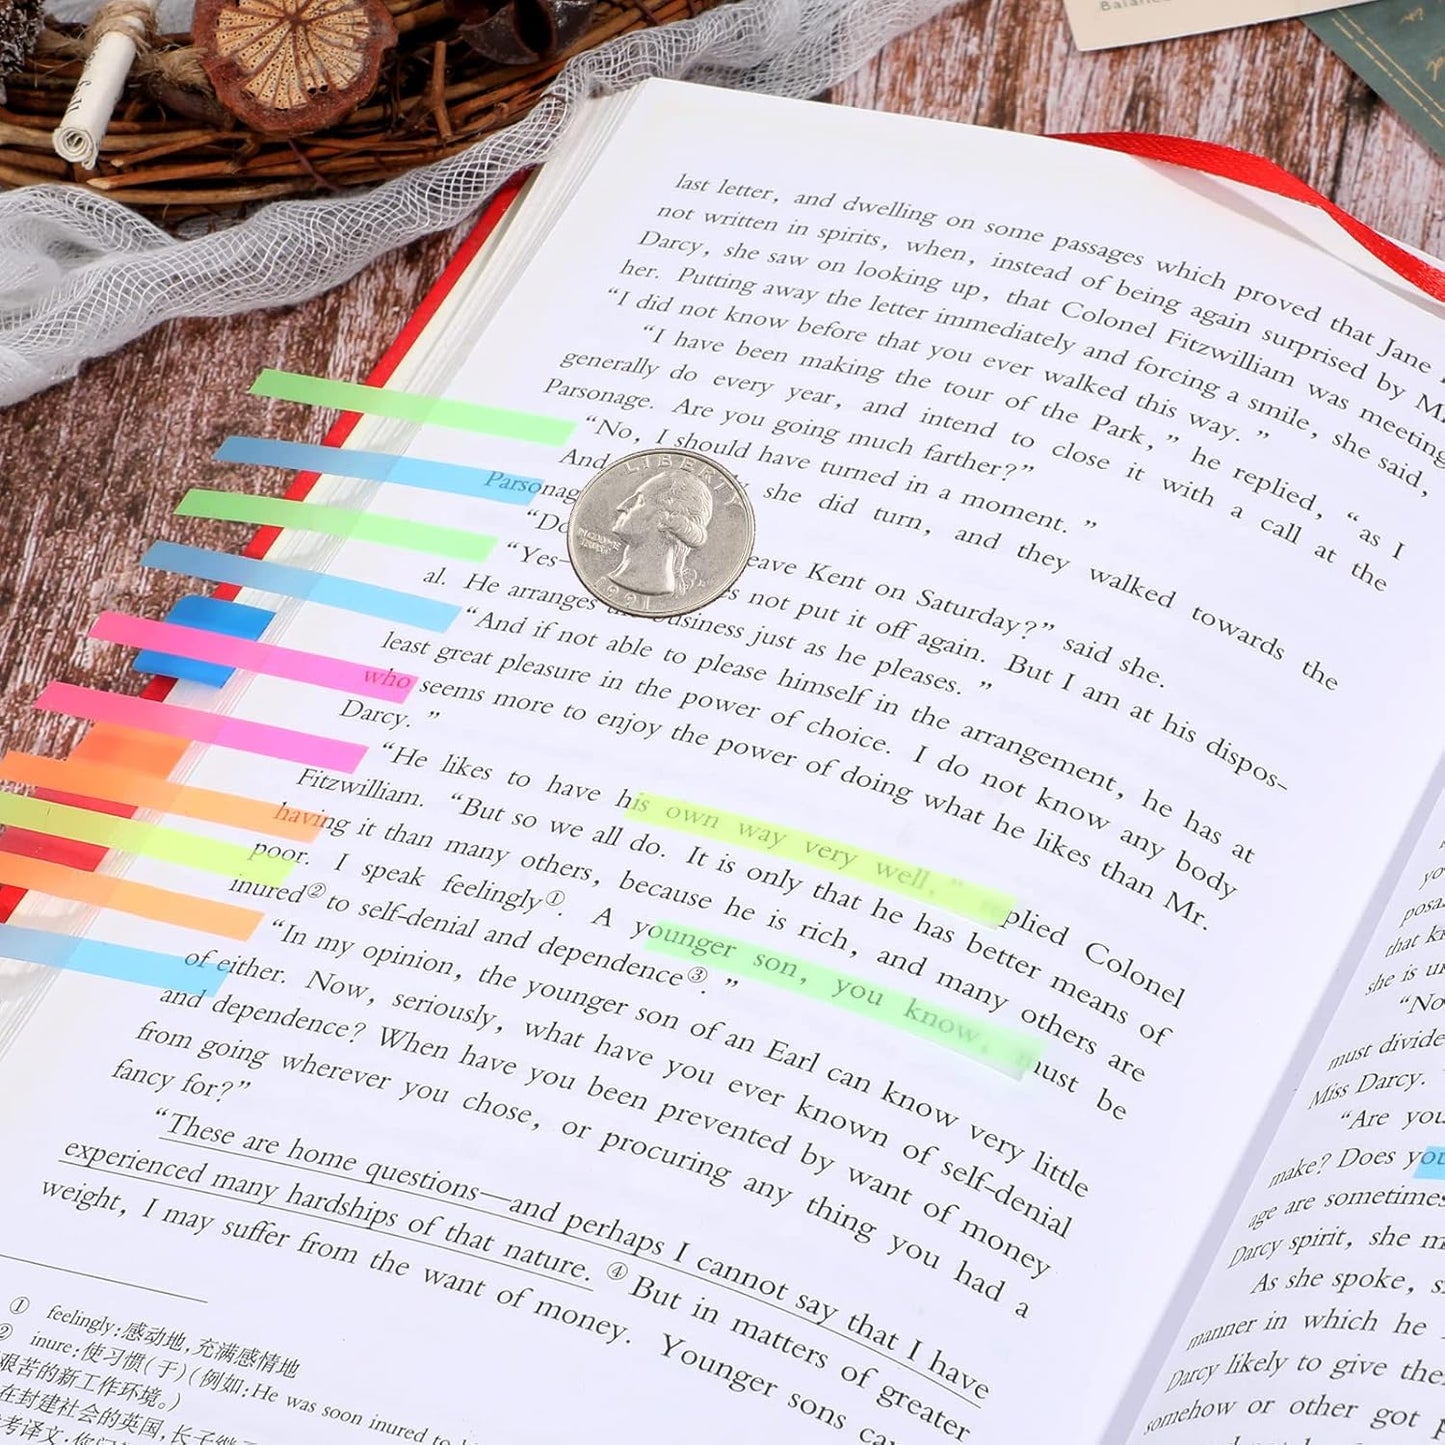 Balance
last letter, and dwelling on some passages which proved that Jane
not written in spirits, when, instead of being again surprised by Mr.
Darcy, she saw on looking up, that Colonel Fitzwilliam was meeting
her. Putting away the letter immediately and forcing a smile, she said,
“I did not know before that you ever walked this way. ”
“I have been making the tour of the Park, ” he replied, “as I
generally do every year, and intend to close it with a call at the
Parsonage. Are you going much farther?”
“No, I should have turned in a moment. ”
And she did turn, and they walked towards the
Parsonag
“Do eave Kent on Saturday?” said she.
“Yes— es not put it off again. But I am at his dispos-
al. He arranges the business just as he pleases. ”
“And if not able to please himself in the arrangement, he has at
least great pleasure in the power of choice. I do not know any body
who seems more to enjoy the power of doing what he likes than Mr.
Darcy. ”
“He likes to have his own way very well, ” replied Colonel
Fitzwilliam. “But so we all do. It is only that he has better means of
having it than many others, because he is rich, and many others are
poor. I speak feelingly①. A younger son, you know, must be
inured② to self-denial and dependence③. ”
“In my opinion, the younger son of an Earl can know very little
of either. Now, seriously, what have you ever known of self-denial
and dependence? When have you been prevented by want of money
from going wherever you chose, or procuring any thing you had a
fancy for?”
“These are home questions—and perhaps I cannot say that I have
experienced many hardships of that nature. ④ But in matters of greater
weight, I may suffer from the want of money. Younger sons ca
① feelingly:感动地,充满感情地
② inure:使习惯(于)(例如:He was soon inured to
艰苦的新工作环境。)
在封建社会的英国,长子继
考译文:你问
LIBERTY
IN GOD WE TRUST
1991
posa
that ki
she is u
“No
must divide
Miss Darcy.
“Are you
make? Does you
age are sometimes
Darcy spirit, she m
As she spoke, s
manner in which he
Darcy likely to give the
somehow or other got p